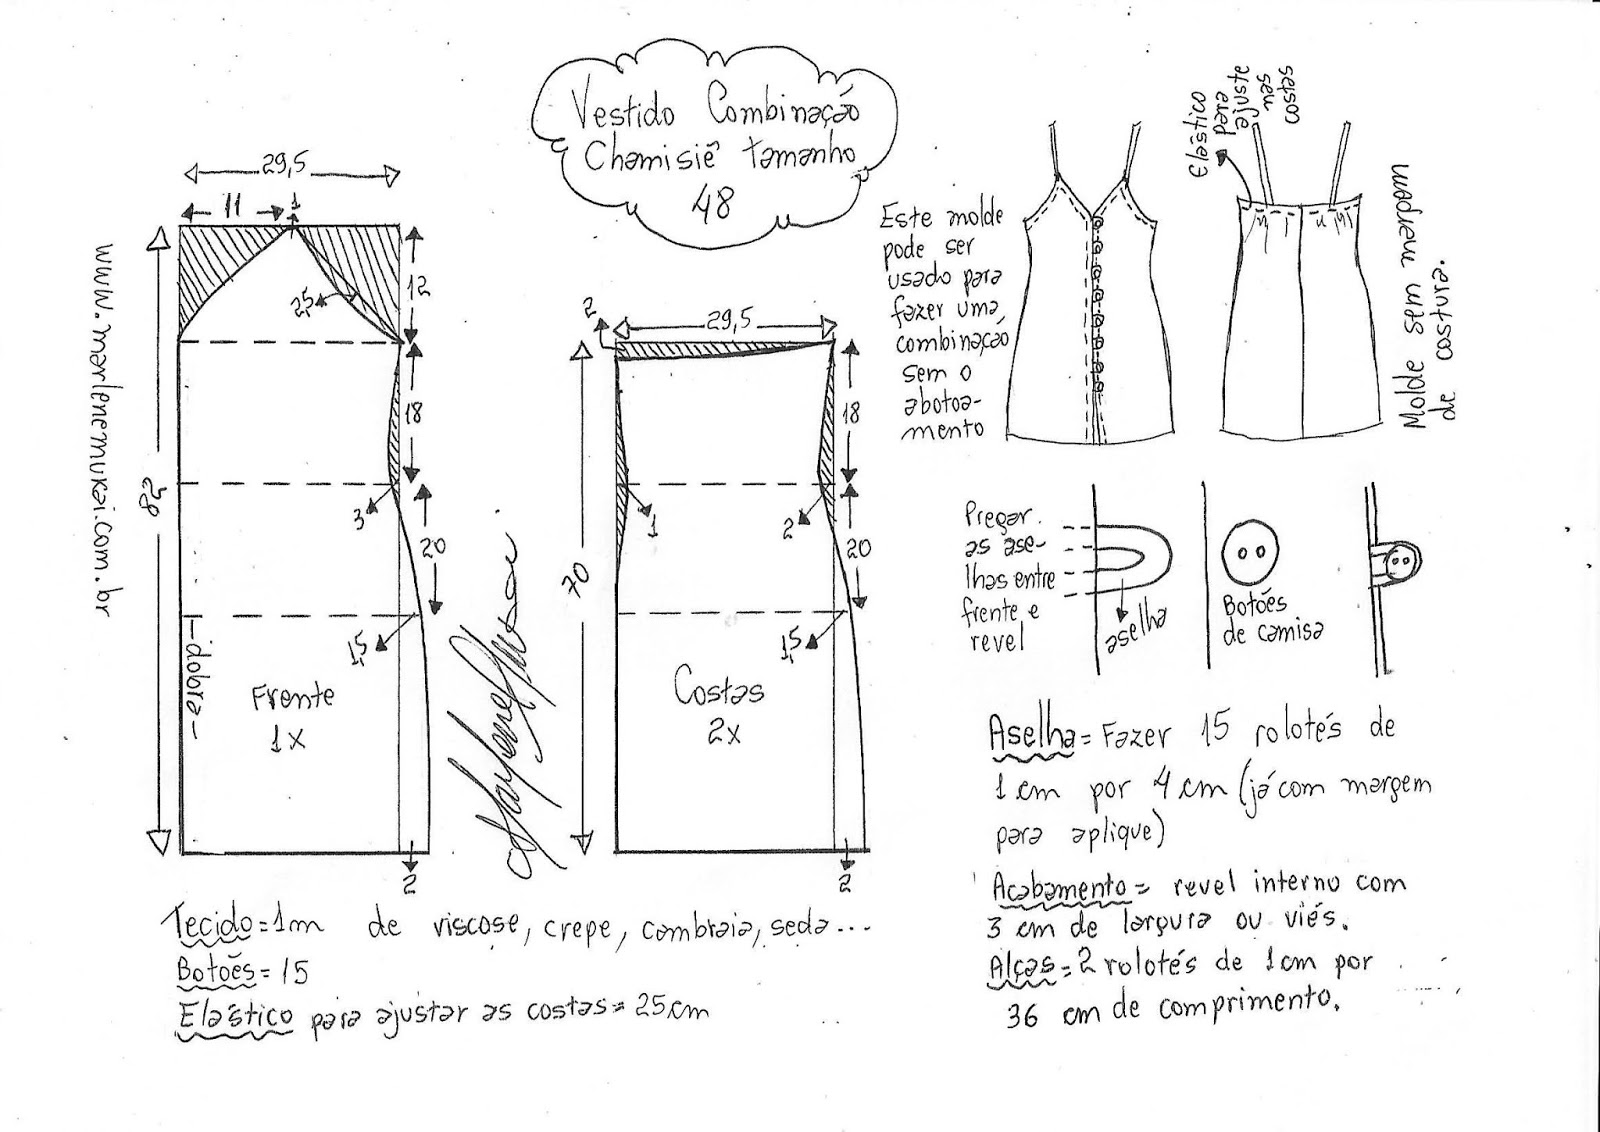 Vestido Combinação
Chamisiê tamanho
48
www.marlenemukai.com.br
29,5
11
1
12
2,5
18
82
3
20
1,5
dobra
Frente
1x
2
2
29,5
18
70
1
2
20
1,5
Costas
2x
2
Este molde
pode ser
usado para
fazer uma
combinação
sem o
abotoa-
mento
Elástico
para
ajuste
nas
costas
Molde sem margem
de costura.
Pregar
as ase-
lhas entre
frente e
revel
aselha
Botões
de camisa
Aselha = Fazer 15 rolotés de
1 cm por 4 cm (já com margem
para aplique)
Acabamento = revel interno com
3 cm de largura ou viés.
Alças = 2 rolotés de 1 cm por
36 cm de comprimento.
Tecido = 1m de viscose, crepe, cambraia, seda...
Botões = 15
Elástico para ajustar as costas = 25cm